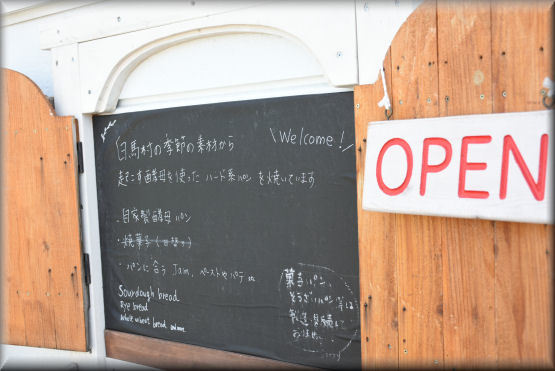 白馬村の季節の素材から
\Welcome!/
起こす酵母を使った ハード系パン を焼いています
OPEN
- 自家製酵母パン
- 焼菓子
- パンに合う Jam、ペーストやパテ etc
Sourdough bread
Rye bread
Whole wheat bread and more
菓子パン、
そうざいパン 等は
製造・販売して
おりません